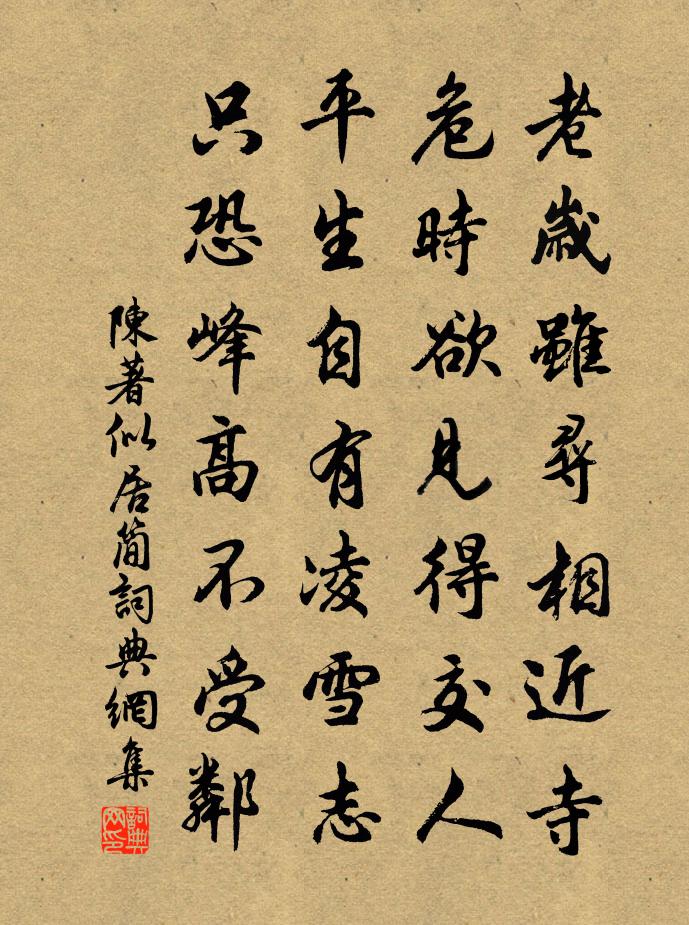 老歲雖尋相近寺
危時欲見得交人
平生自有凌雪志
只恐峰高不受鄰
陳著似居簡詞典網集
詞典網印